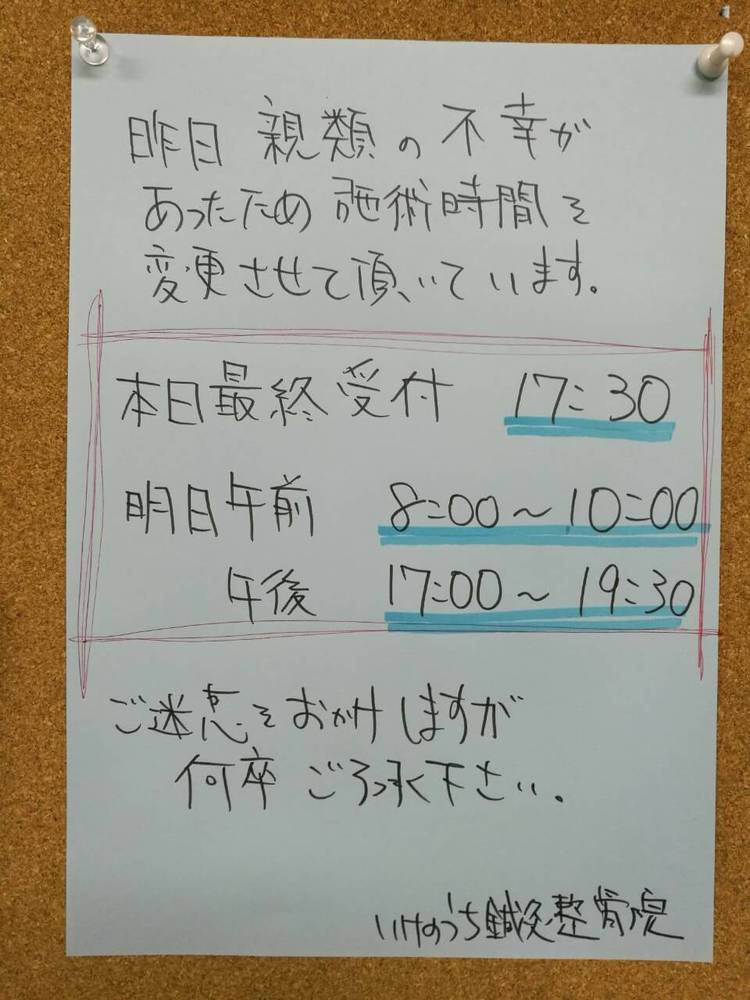 昨日 親類の不幸が
あったため施術時間を
変更させて頂いています。
本日最終受付 17:30
明日午前 8:00〜10:00
午後 17:00〜19:30
ご迷惑をおかけしますが
何卒ご了承下さい。
いけのうち鍼灸整骨院